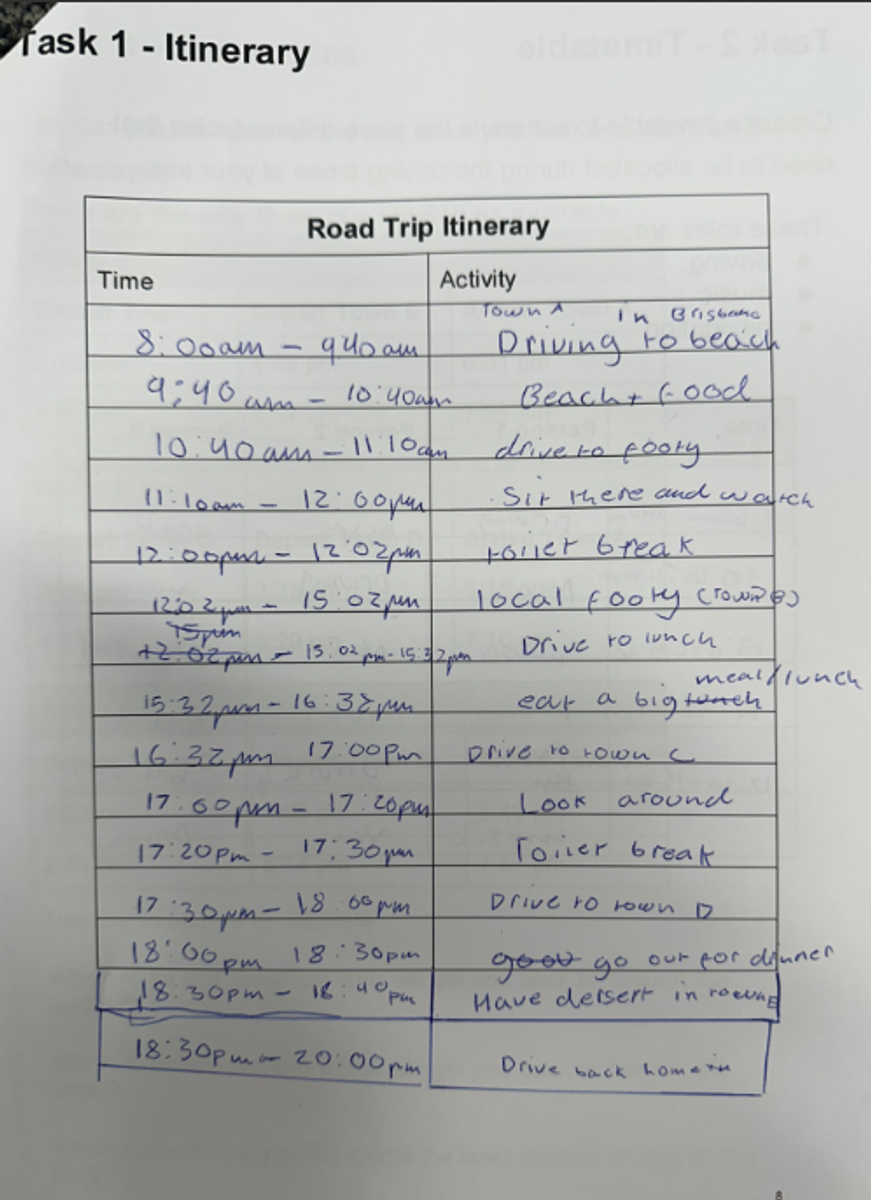 Task 1 - Itinerary
Road Trip Itinerary
Time Activity
Town A in Brisbane
8:00am – 940am Driving to beach
9:40am – 10:40am Beach + food
10:40am – 11:10am drive to footy
11:10am – 12:00pm Sit there and watch
12:00pm – 1202pm toilet break
12:02pm – 15:02pm local footy (Town B)
15pm
12:02pm – 15:02pm-15:32pm Drive to lunch
meal/lunch
15:32pm – 16:32pm eat a big lunch
16:32pm 17:00pm Drive to town C
17:00pm – 17:20pm Look around
17:20pm – 17:30pm Toilet break
17:30pm – 18:00pm Drive to town D
18:00pm 18:30pm go out for dinner
18:30pm – 18:40pm Have detsert in
18:30pm – 20:00pm Drive back home
8